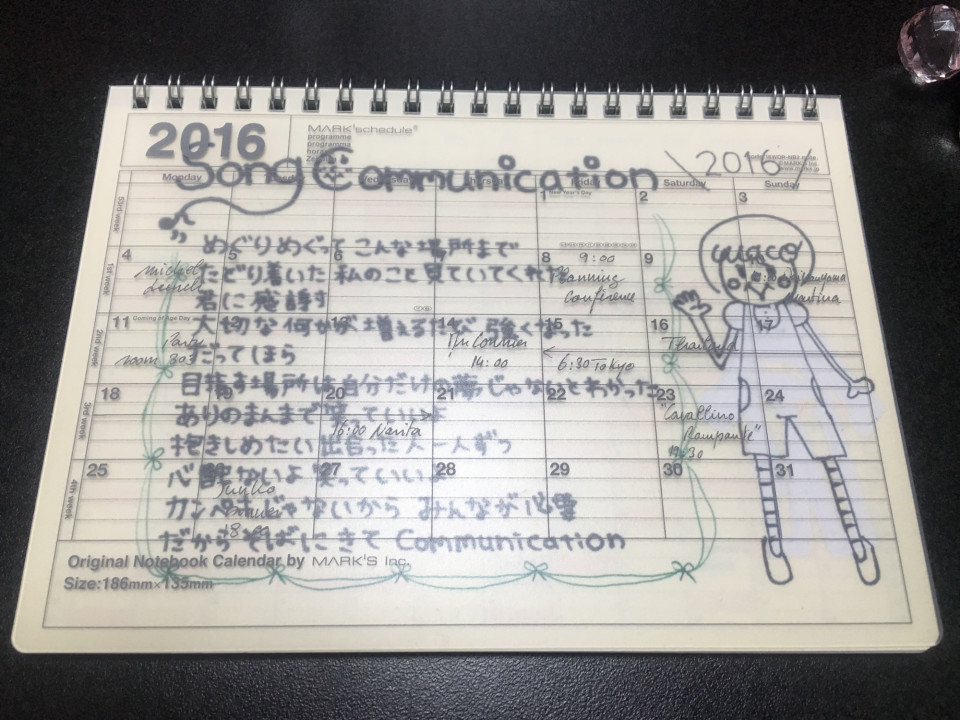 2016
MARK'schedule
programme
programme
\2016/
Song Communication
Monday
Saturday
Sunday
1 New Year's Day
2
3
めぐりめぐって こんな場所まで
4
5
6
8
9
9:00
たどり着いた 私のこと 見ていてくれた
Planning
Conference
君に感謝す
11 Coming of Age Day
14
15
16
17
大切な何かが 増えるたび 強くなった
Party
room 303
14:00
6:30 Tokyo
だってほら
目指す場所は自分だけの夢じゃないとわかった
18
20
21
22
23
24
ありのまんまで笑っていいよ
16:00 Narita
"Cavallino
Rampante"
19:30
抱きしめたい 出会った人 一人ずつ
25
27
28
29
30
31
心配ないよ 笑っていいよ
カンペキじゃないから みんなが必要
だから そばにきて Communication
Original Notebook Calendar by MARK'S Inc.
Size:186mm×135mm
1st week
2nd week
3rd week
4th week